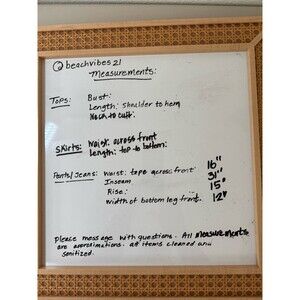 @ beachvibes 21
Measurements:
Tops: Bust:
Length: Shoulder to hem
Neck to cuff:
Skirts: Waist: across front
Length: top to bottom:
Pants/Jeans: Waist: tape across front 16"
Inseam 31"
Rise: 15"
width of bottom leg front. 12"
Please message with questions. All measurements
are approximations. all items cleaned and
sanitized.